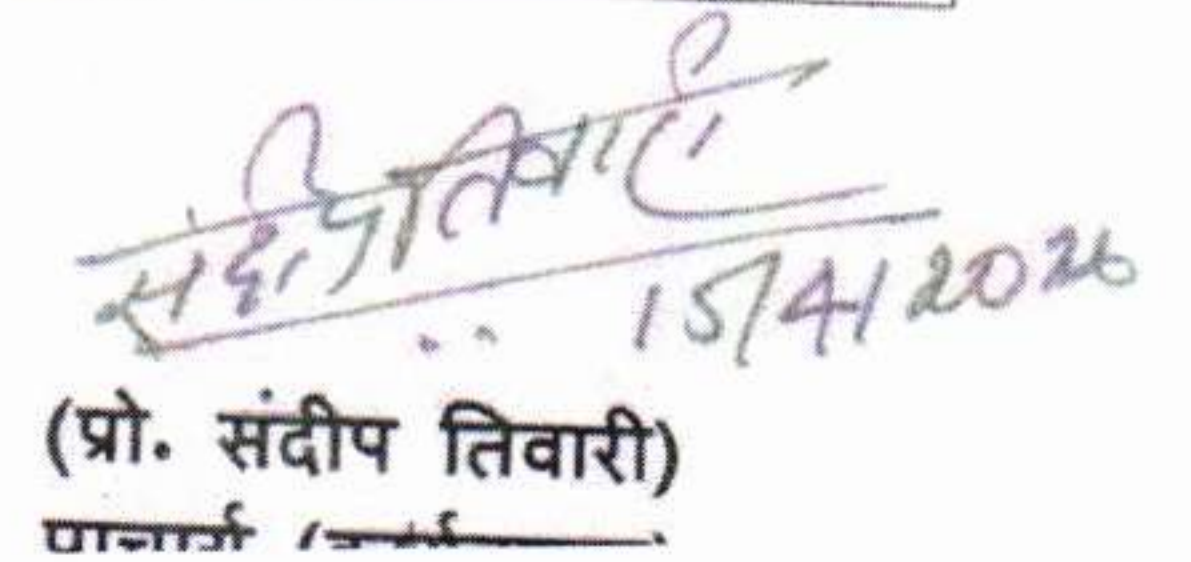 संदीप तिवारी
15/4/2026
(प्रो. संदीप तिवारी)
प्राचार्य